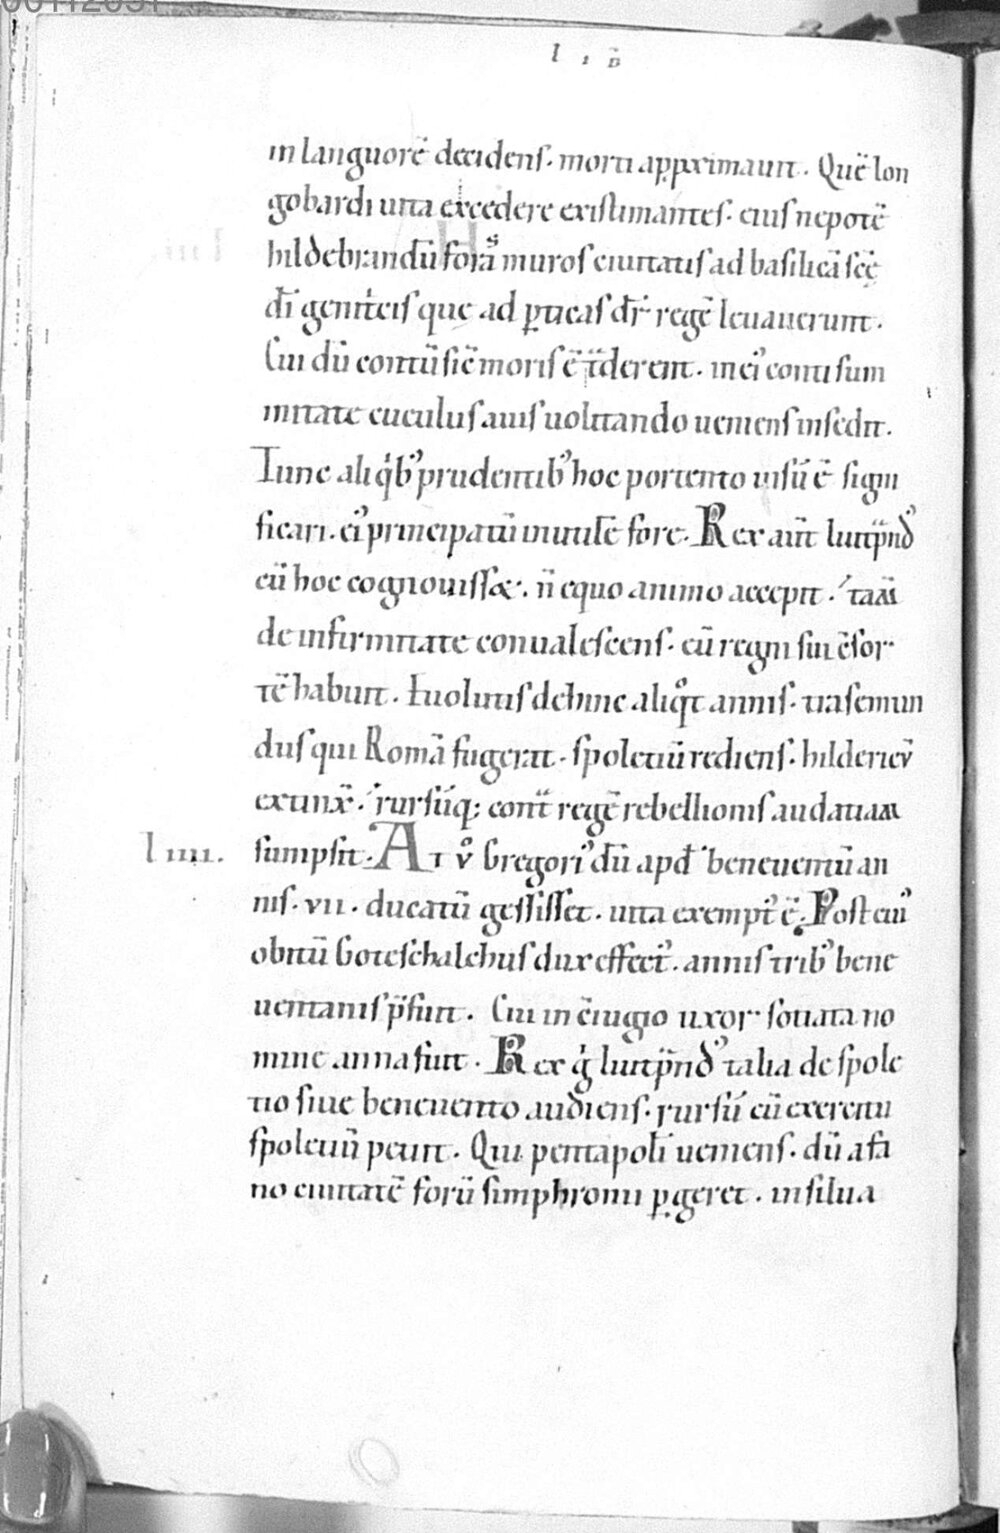 l i b̃
in languorē decidens. morti app̱ximauit. Quē lon
gobardi uita excedere existimantes. eius nepotē
hildebrandū foras muros ciuitatis ad basilicā scę̄
dī genitͥcis quę ad p̱ticas dr̄ regē leuauerunt.
Cui dū contū sic̄ moris ē t̄derent. in ei᾽ conti sum
mitate cuculus auis uolitando ueniens insedit.
Tunc aliqͥb᾽ prudentib᾽ hoc portento uisū ē signi
ficari. ei᾽ principatū inutilē fore. Rex aut̄ liutp̄nd᾽
cū hoc cognouisset. n̄ equo animo accepit. tam̄
de infirmitate conualescens. eū regni sui c̄sor
tē habuit. Euolutis dehinc aliqͦt annis. trasemun
dus qui Romā fugerat. spoletiū rediens. hildericū
extinx̄. rursūq; cont̄ regē rebellionis audatiam
l iiii. sumpsit. At v̊ Gregori᾽ dū apd̄ beneuentū an
nis. vii. ducatū gessisset. uita exempt᾽ ē. Post cui᾽
obitū Goteschalchus dux effect᾽. annis trib᾽ bene
uentanis p̄fuit. Cui in c̄iugio uxor sotiata no
mine anna fuit. Rex gͥ liutp̄nd᾽ talia de spole
tio siue beneuento audiens. rursū cū exercitu
spoletiū petiit. Qui pentapolī ueniens. dū a fa
no ciuitatē forū simphronii p̱geret. in silua